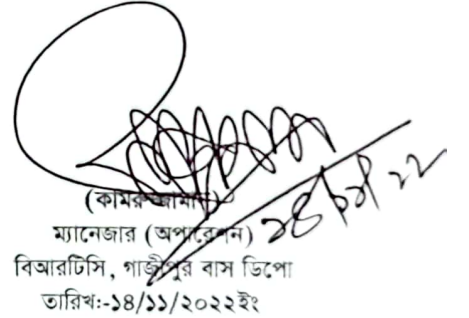 (কামরুজ্জামান)
ম্যানেজার (অপারেশন)
বিআরটিসি, গাজীপুর বাস ডিপো
তারিখ:-১৪/১১/২০২২ইং